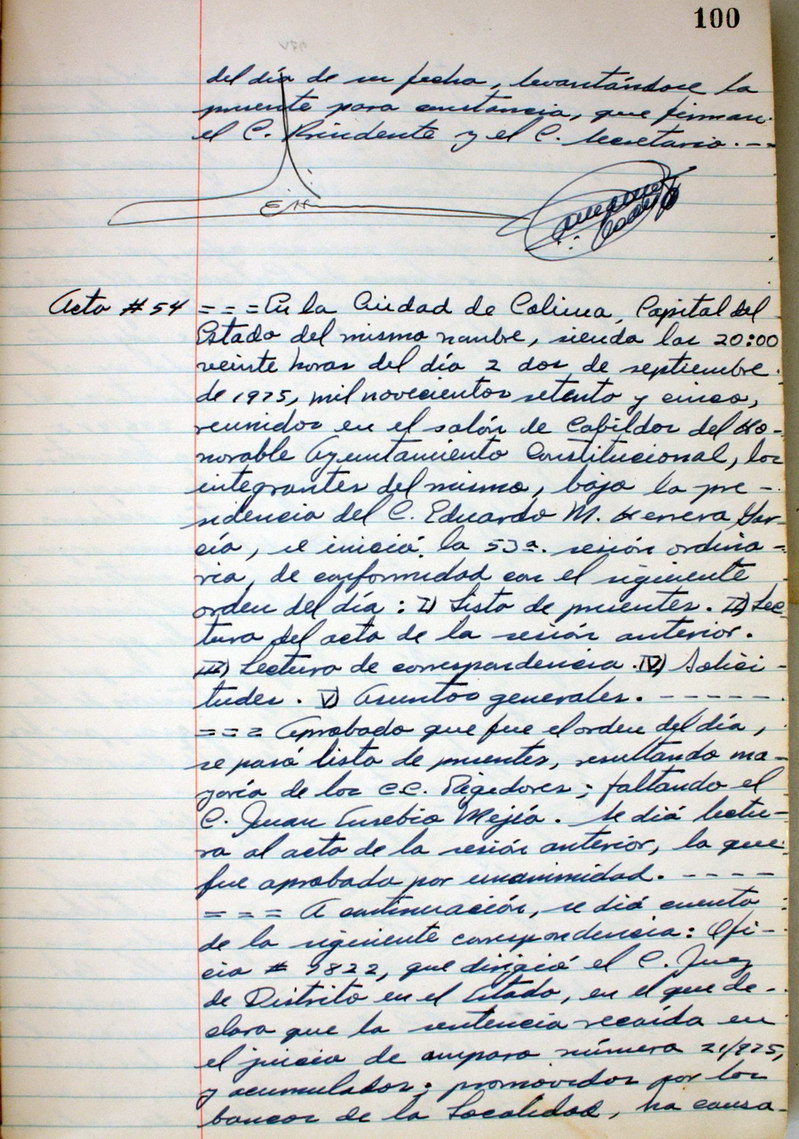 100
del día de su fecha, levantándose la
presente para constancia, que firman
el C. Presidente y el C. Secretario. - -
Acta # 54 = = = En la Ciudad de Colima, Capital del
Estado del mismo nombre, siendo las 20:00
veinte horas del día 2 dos de septiembre
de 1975, mil novecientos setenta y cinco,
reunidos en el salón de Cabildos del Ho-
norable Ayuntamiento Constitucional, los
integrantes del mismo, bajo la pre-
sidencia del C. Eduardo M. Herrera Gar-
cía, se inició la 53a. sesión ordina-
ria, de conformidad con el siguiente
orden del día: I) Lista de presentes. II) Lec-
tura del acta de la sesión anterior.
III) Lectura de correspondencia. IV) Solici-
tudes. V) Asuntos generales. - - - - -
= = = Aprobado que fue el orden del día,
se pasó lista de presentes, resultando ma-
yoría de los CC. Regidores; faltando el
C. Juan Eusebio Mejía. Se dió lectu-
ra al acta de la sesión anterior, la que
fue aprobada por unanimidad. - - - -
= = = A continuación, se dió cuenta
de la siguiente correspondencia: Ofi-
cio # 7822, que dirigió el C. Juez
de Distrito en el Estado, en el que de-
clara que la sentencia recaída en
el juicio de amparo número 21/975,
y acumulados; promovidos por los
bancos de la Localidad, ha causa-